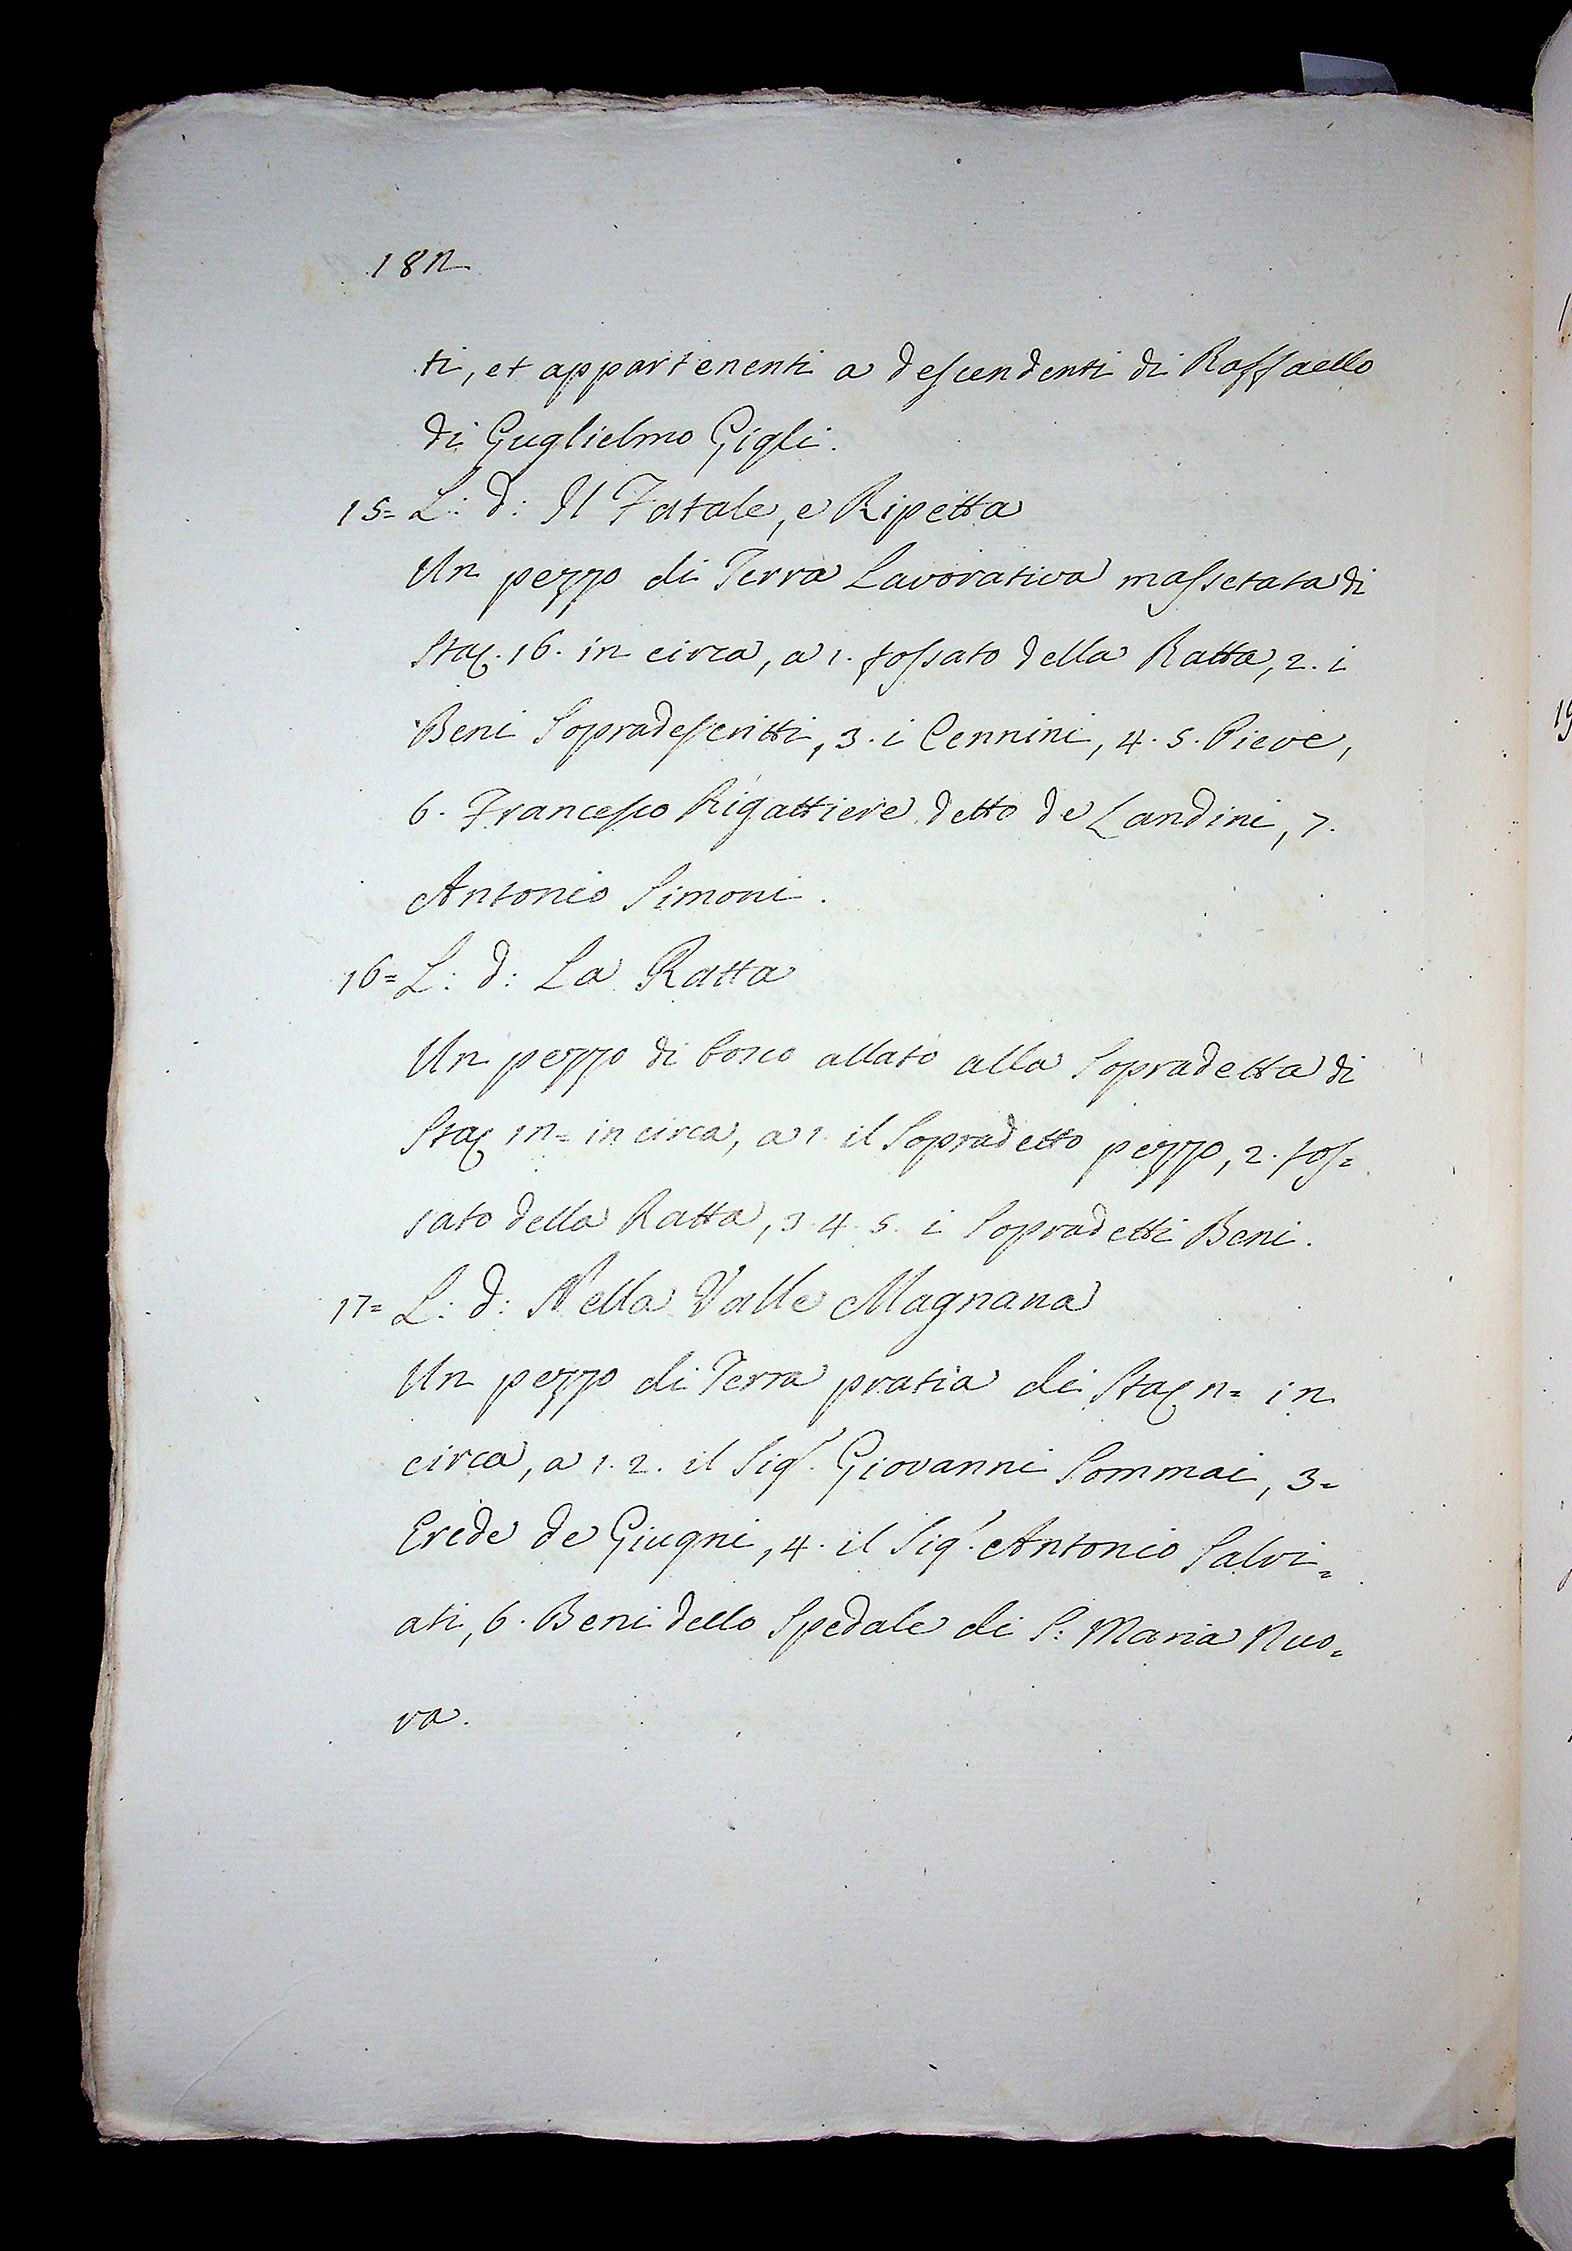 182
ti, et appartenenti a descendenti di Raffaello
di Guglielmo Gigli.
15= L: d: Il Fatale, e Ripetta
Un pezzo di Terra Lavorativa massetata di
Staς. 16. in circa, a 1. fossato della Ratta, 2. i
Beni Sopradescritti, 3. i Cennini, 4. 5. Pieve,
6. Francesco Rigattiere detto de Landini, 7.
Antonio Simoni.
16= L: d: La Ratta
Un pezzo di bosco allato alla Sopradetta di
Staς 12= in circa, a 1. il Sopradetto pezzo, 2. fos=
sato della Ratta, 3. 4. 5. i Sopradetti Beni.
17= L: d: Nella Valle Magnana
Un pezzo di Terra pratia di Staς 2= in
circa, a 1. 2. il Sig.r Giovanni Sommai, 3=
Erede de Giugni, 4. il Sig.r Antonio Salvi=
ati, 6. Beni dello Spedale di S: Maria Nuo=
va.